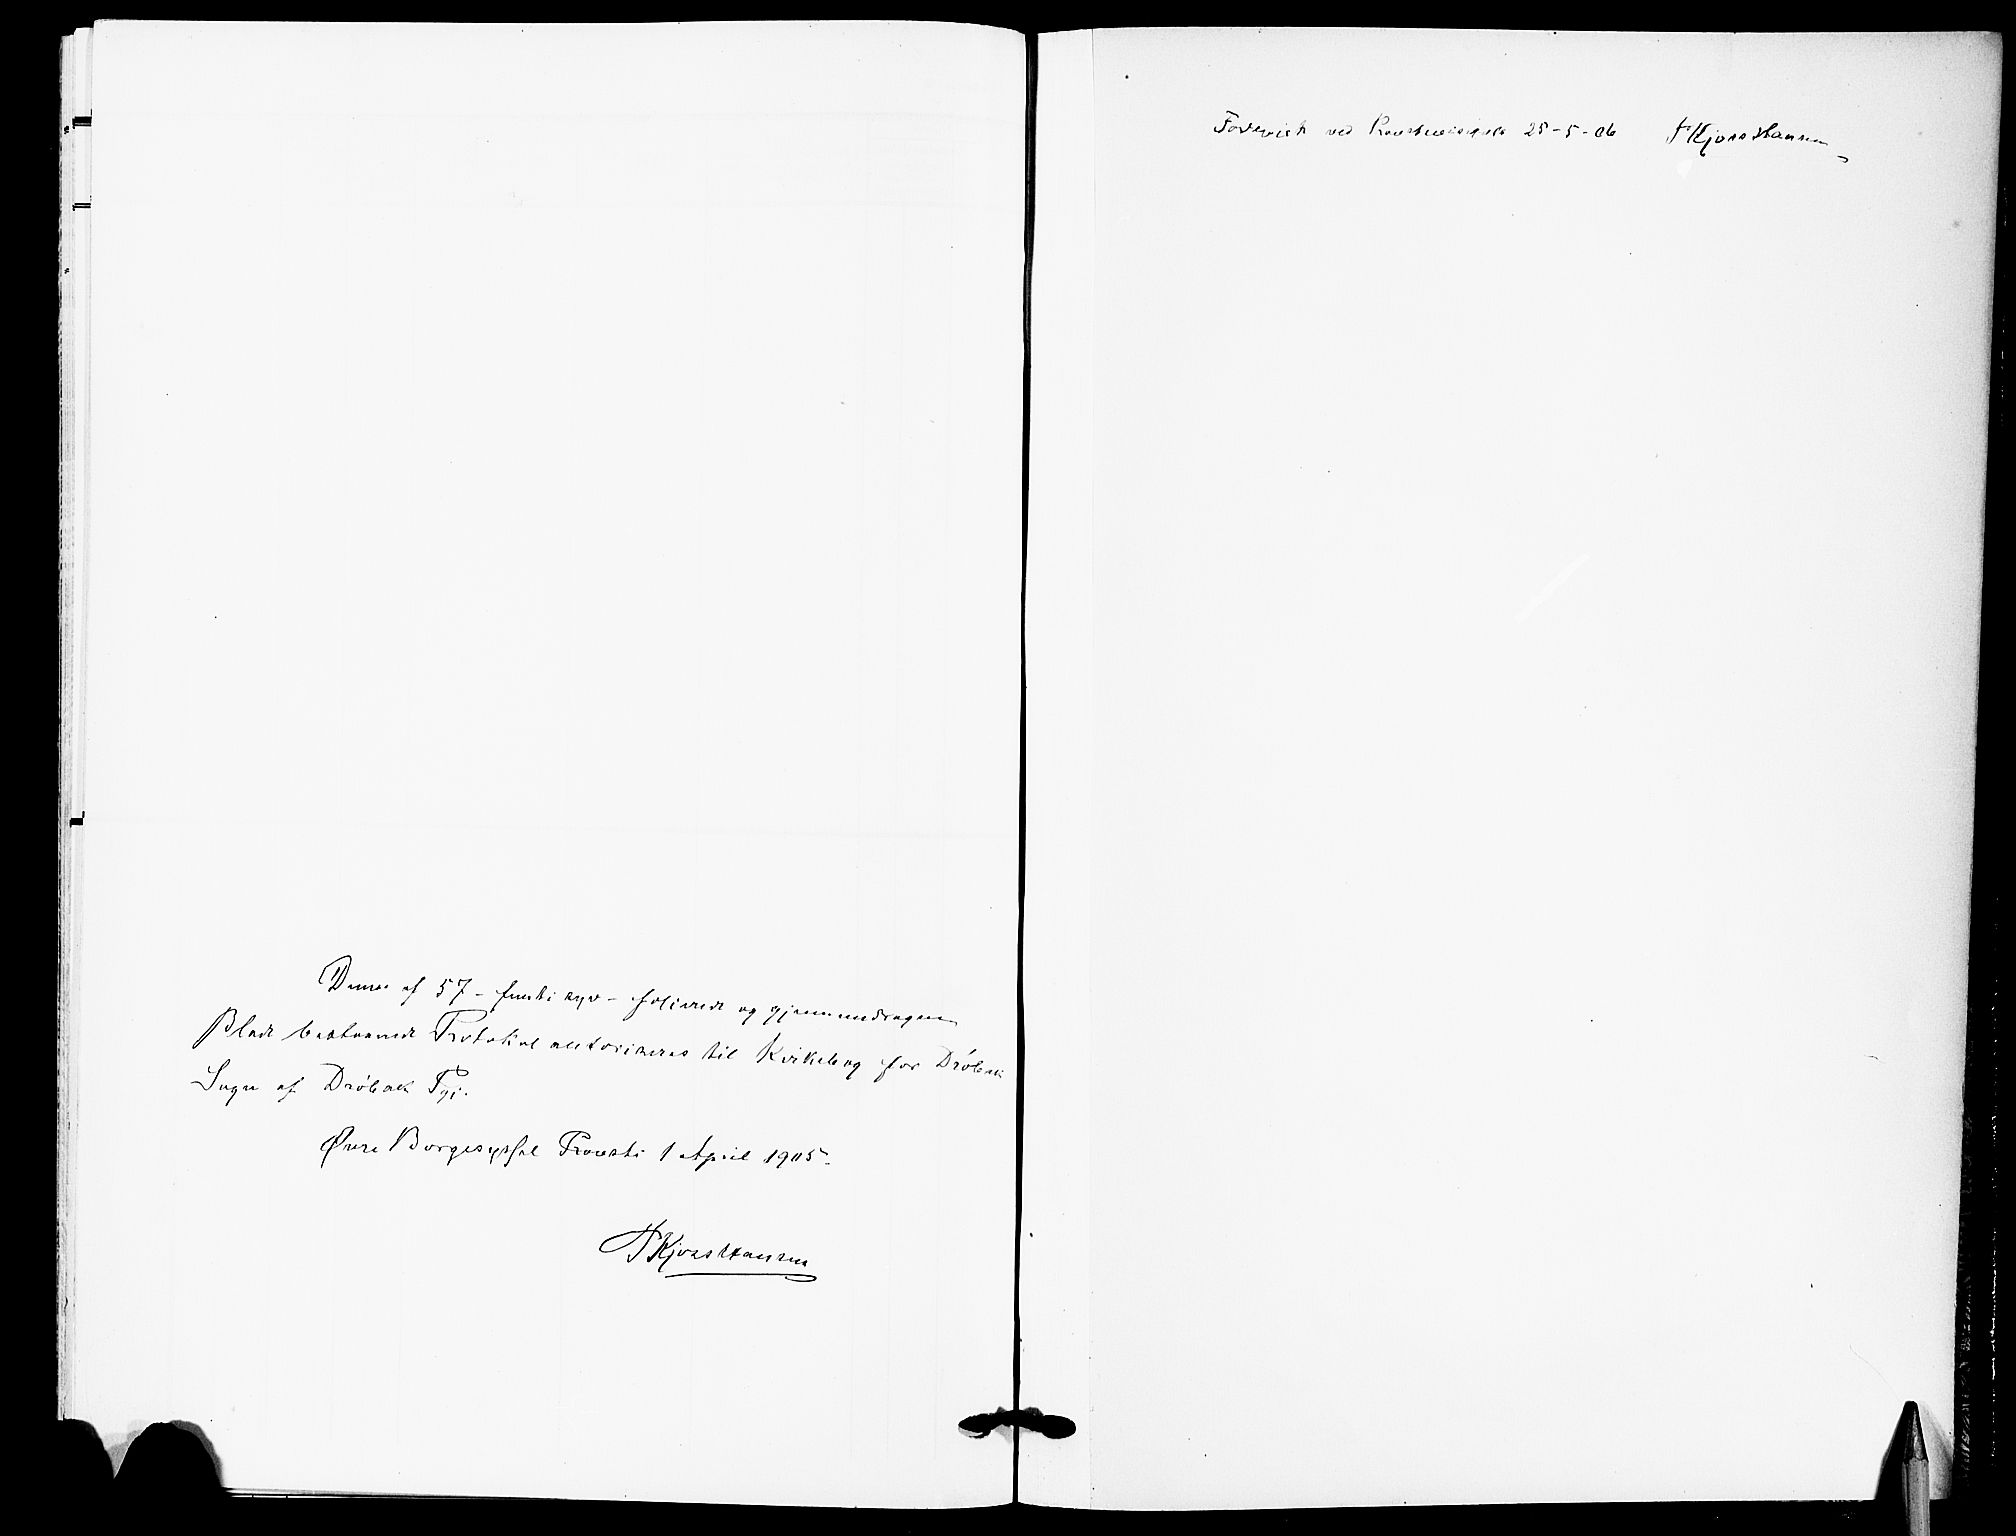 Denne af 57 - femti syv - folierede og gjennemdragne
Blade bestaaende Protokol autoriseres til Kirkebog for Drøbak
Sogn af Drøbak Pgj.
Øvre Borgesyssel Provsti 1 April 1905.
Kjorstad Hansen
Forevist ved Provstevisitats 25-5-06